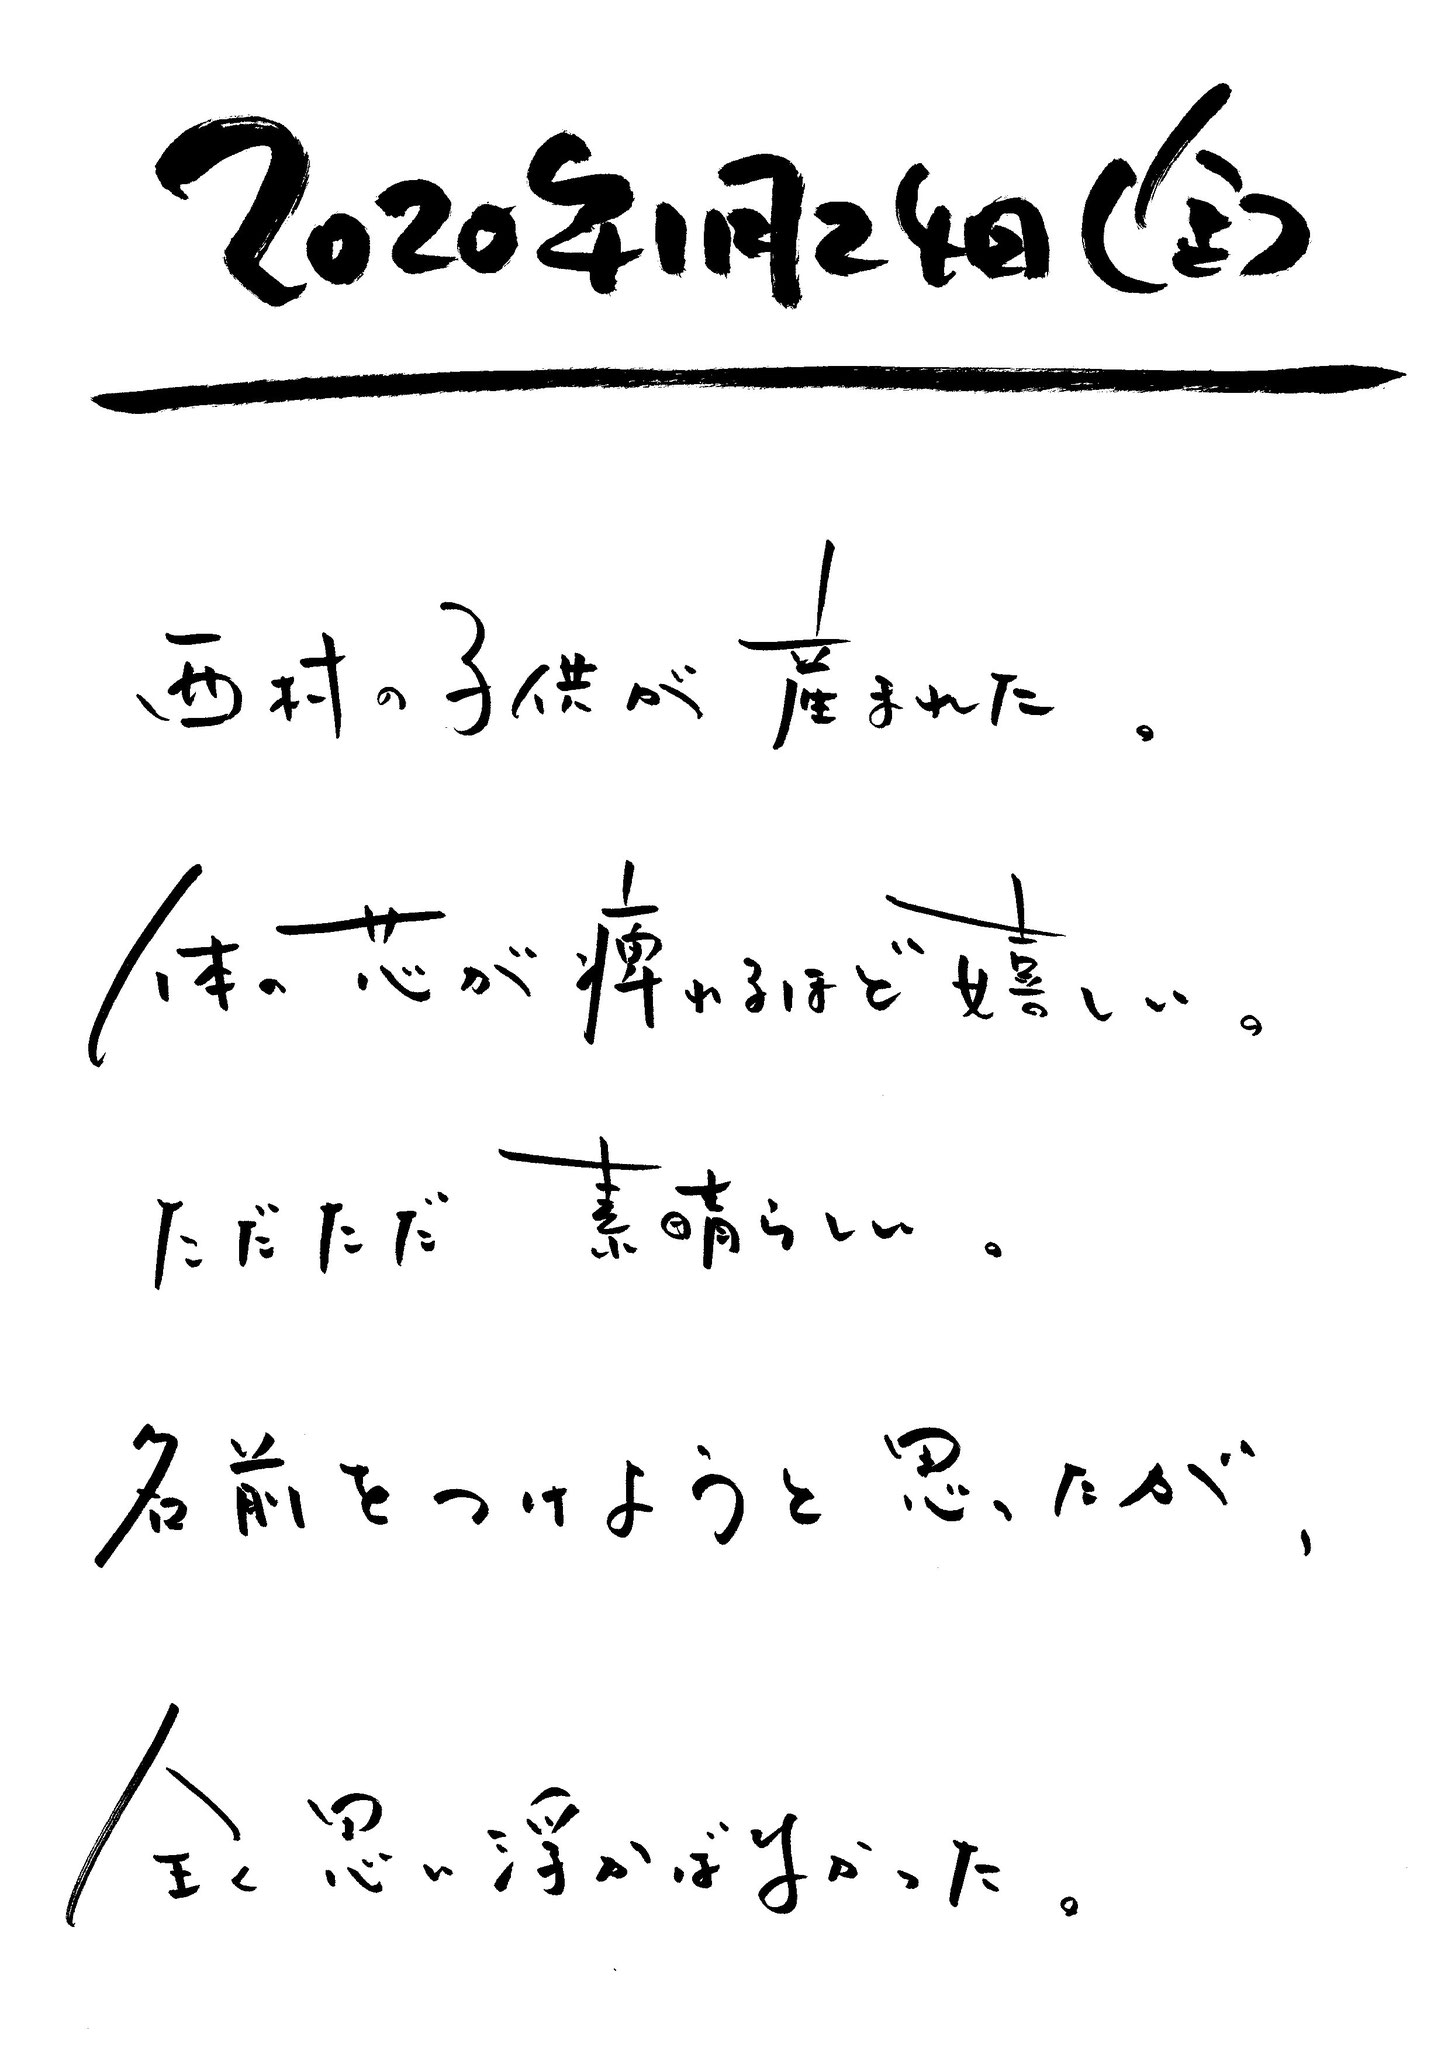 2020年1月24日(金)
西村の子供が産まれた。
体の芯が痺れるほど嬉しい。
ただただ素晴らしい。
名前をつけようと思ったが、
全く思い浮かばなかった。